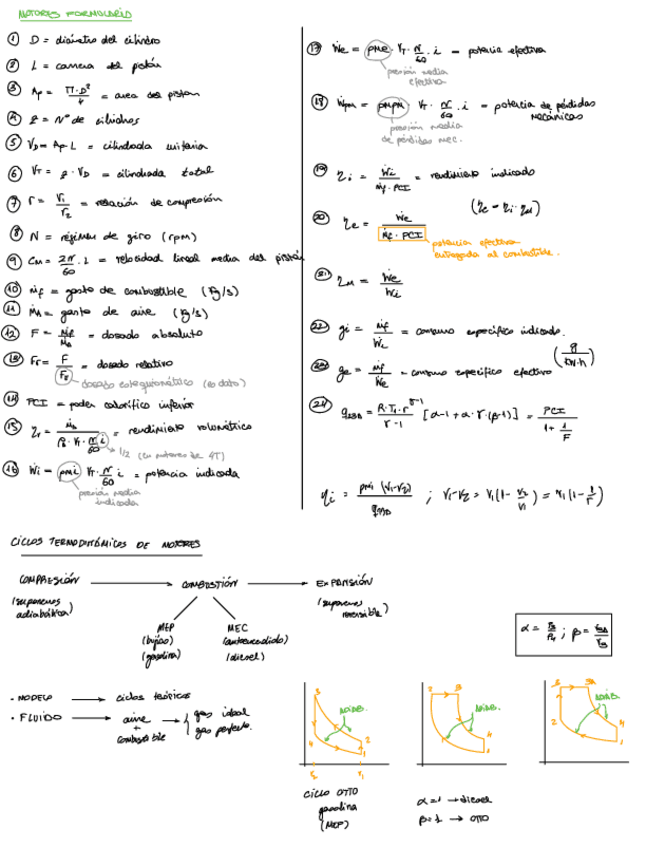 MOTORES FORMULARIO
① D = diámetro del cilindro
② L = carrera del pistón
③ Ap = π·D²/4 = area del pistón
④ z = Nº de cilindros
⑤ VD = Ap·L = cilindrada unitaria
⑥ VT = z·VD = cilindrada total
⑦ r = V1/V2 = relación de compresión
⑧ N = régimen de giro (rpm)
⑨ Cm = 2N/60 · L = velocidad lineal media del pistón
⑩ ṁf = gasto de combustible (kg/s)
⑪ ṁa = gasto de aire (kg/s)
⑫ F = ṁf/ṁa = dosado absoluto
⑬ Fr = F/Fe = dosado relativo
dosado estequiométrico (es dato)
⑭ PCI = poder calorífico inferior
⑮ ηv = ṁa / (ρa · VT · N/60 · i) = rendimiento volumétrico
1/2 (en motores de 4T)
⑯ Ẇi = pmi · VT · N/60 · i = potencia indicada
presión media
indicada
⑰ Ẇe = pme · VT · N/60 · i = potencia efectiva
presión media
efectiva
⑱ Ẇpm = pmpm · VT · N/60 · i = potencia de pérdidas
mecánicas
presión media
de pérdidas mec.
⑲ ηi = Ẇi / (ṁf · PCI) = rendimiento indicado
⑳ ηe = Ẇe / (ṁf · PCI) (ηe = ηi · ηm)
potencia efectiva
entregada al combustible.
㉑ ηm = Ẇe/Ẇi
㉒ gi = ṁf/Ẇi = consumo específico indicado.
㉓ ge = ṁf/Ẇe = consumo específico efectivo (g/kW·h)
㉔ q23D = R·T1·r^(γ-1) / (γ-1) [α-1+α·γ·(β-1)] = PCI / (1 + 1/F)
ηi = pmi (V1-V2) / q23D ; V1-V2 = V1(1 - V2/V1) = V1(1 - 1/r)
CICLOS TERMODINÁMICOS DE MOTORES
COMPRESIÓN → COMBUSTIÓN → EXPANSIÓN
(suponemos
adiabática)
MEP
(bujías)
(gasolina)
MEC
(autoencendido)
(diesel)
(suponemos
reversible)
α = P3/P2 ; β =
· MODELO → ciclos teóricos
· FLUIDO → aire
+
combustible
→ gas ideal
gas perfecto.
3
4
2
1
ADIAB.
V2
V1
CICLO OTTO
gasolina
(MEP)
2
3A
4
1
ADIAB.
α=1 → diesel
β=1 → OTTO
3
3A
2
4
1
ADIAB.